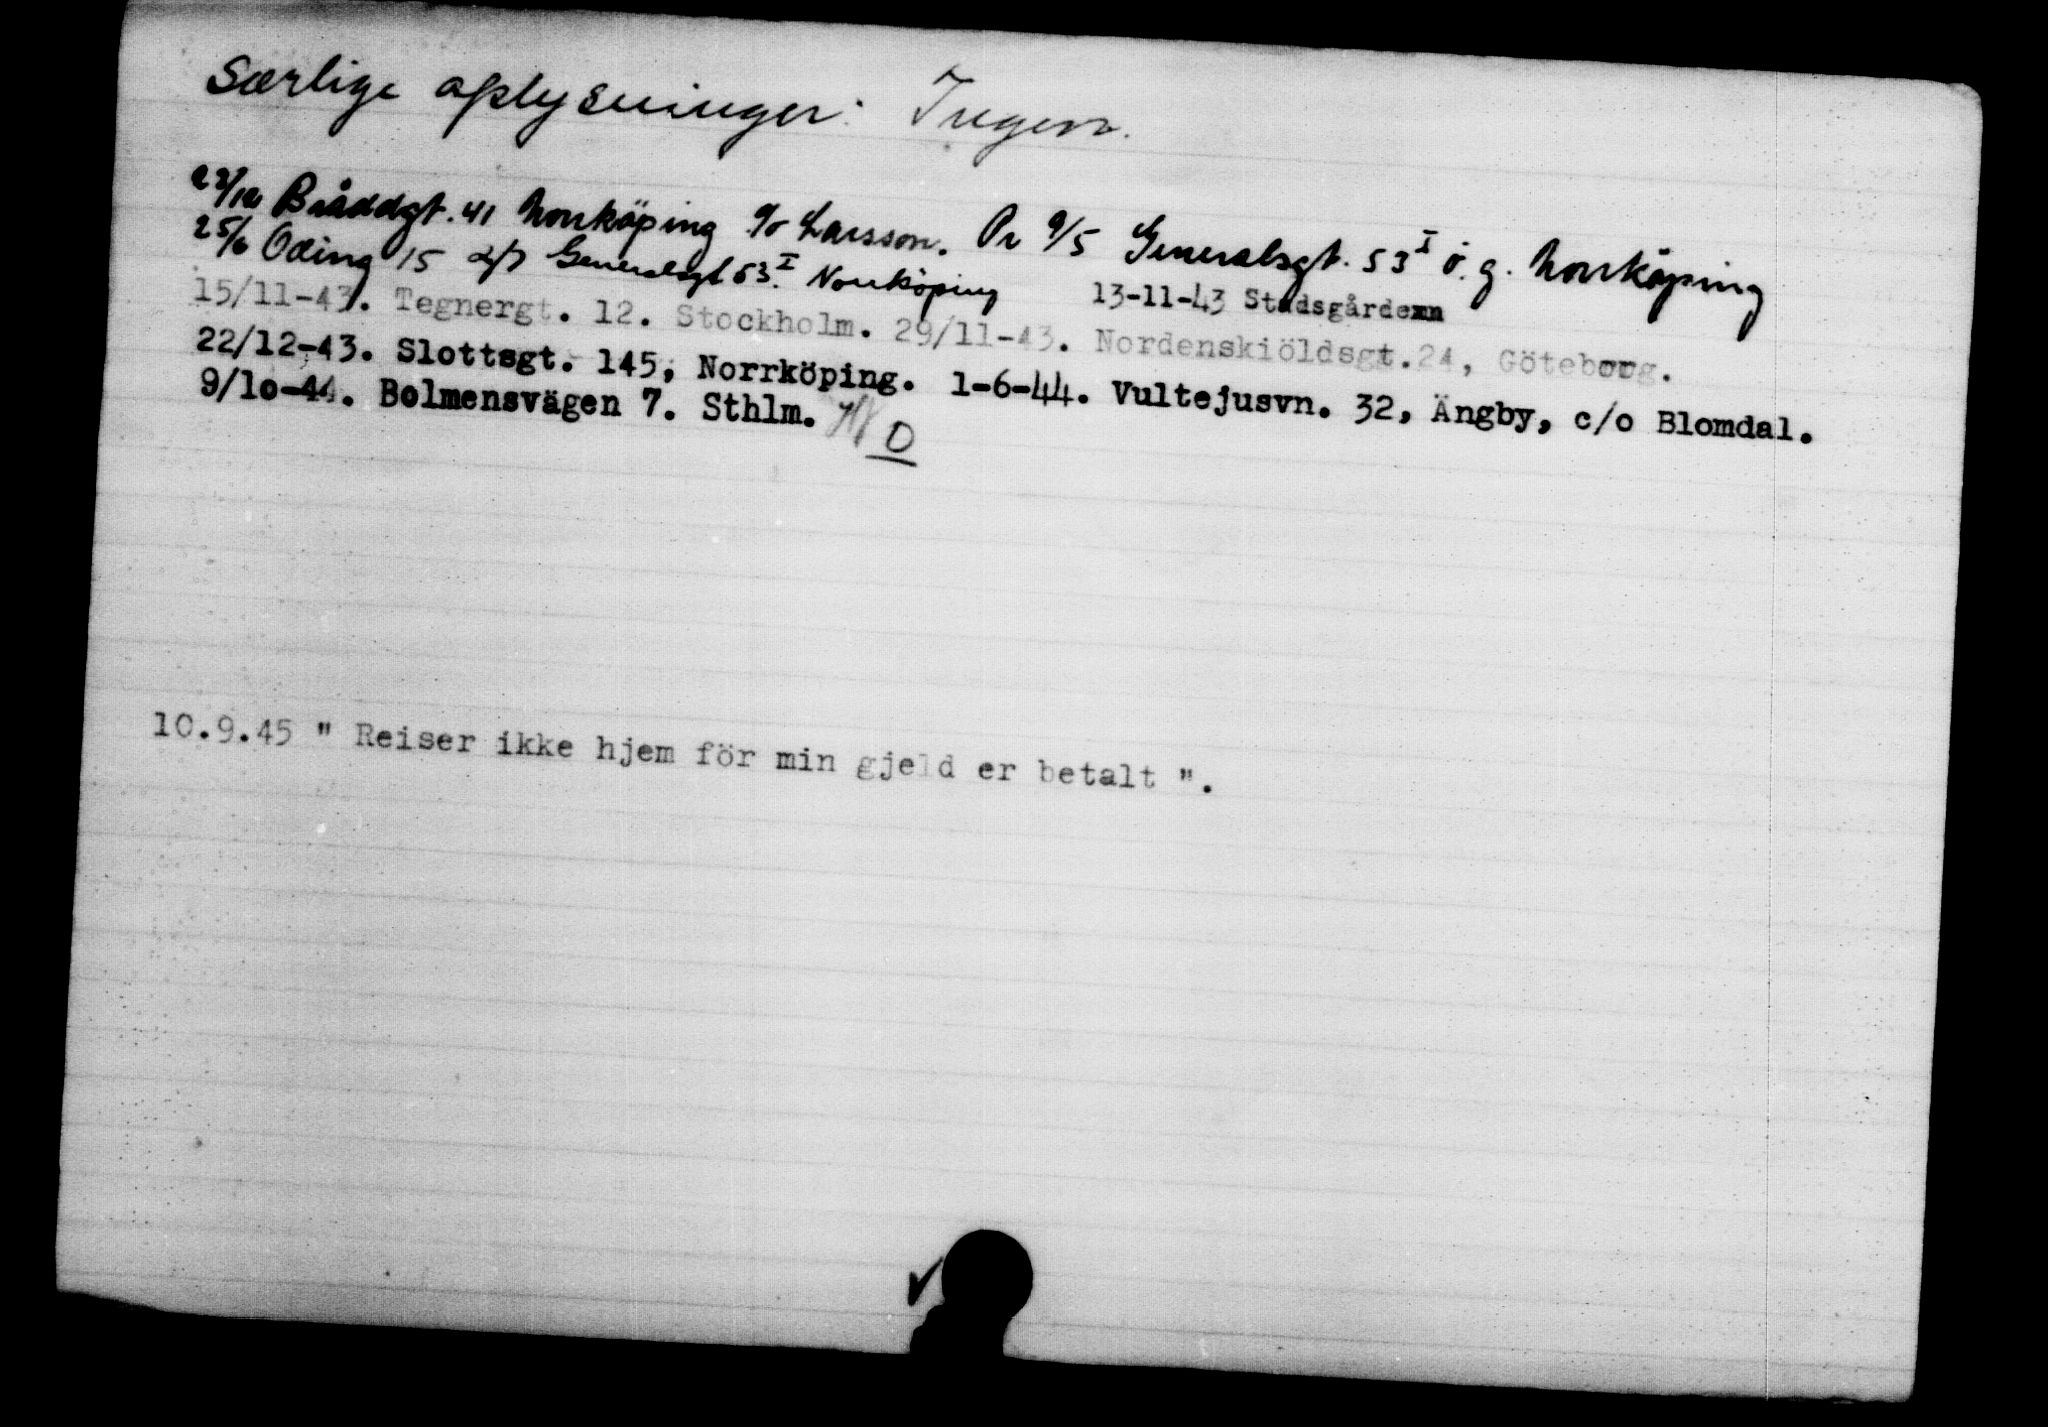 Særlige oplysninger: Ingen.
23/12 Bråddgt. 41 Norrköping c/o Larsson. Pr 9/5 Generalsgt. 53 I ö.g. Norrköping
25/6 Oding 15 Generalsgt 53 I Norrköping
13-11-43 Stadsgården
15/11-43. Tegnergt. 12. Stockholm. 29/11-43. Nordenskiöldsgt.24, Göteborg.
22/12-43. Slottsgt. 145, Norrköping. 1-6-44. Vultejusvn. 32, Ängby, c/o Blomdal.
9/10-44. Bolmensvägen 7. Sthlm. D
10.9.45 " Reiser ikke hjem för min gjeld er betalt ".